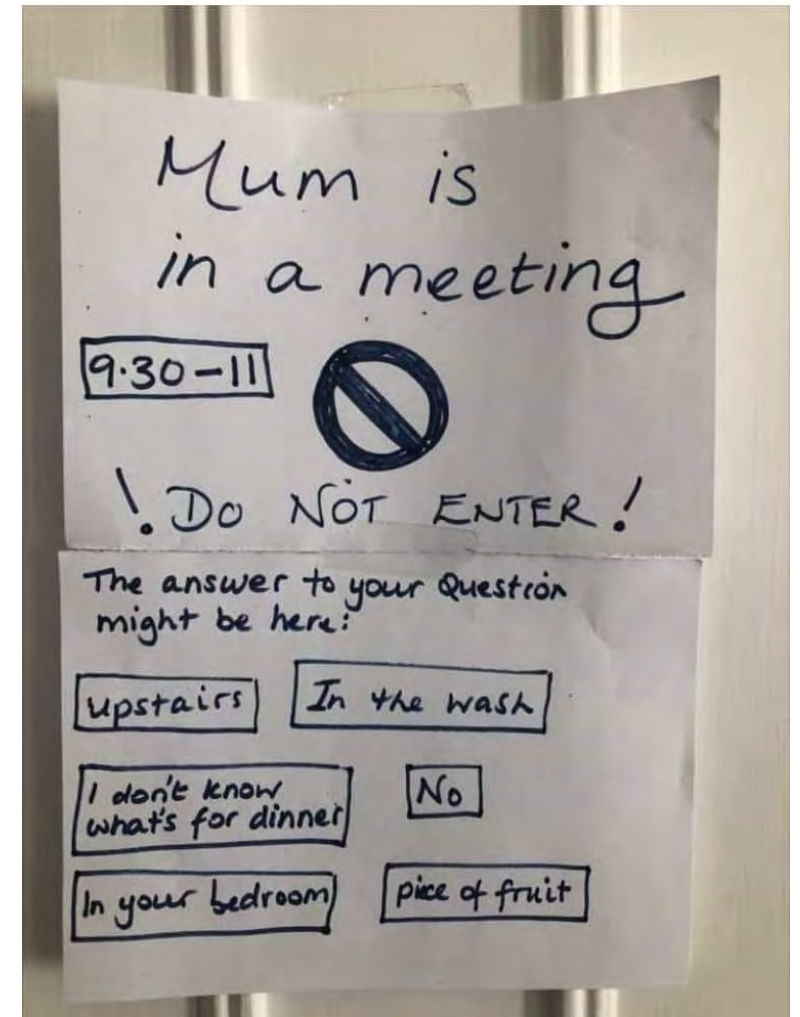 Mum is
in a meeting
9.30-11
! DO NOT ENTER!
The answer to your Question
might be here:
upstairs In the wash
I don't know
what's for dinner
No
In your bedroom
piece of fruit